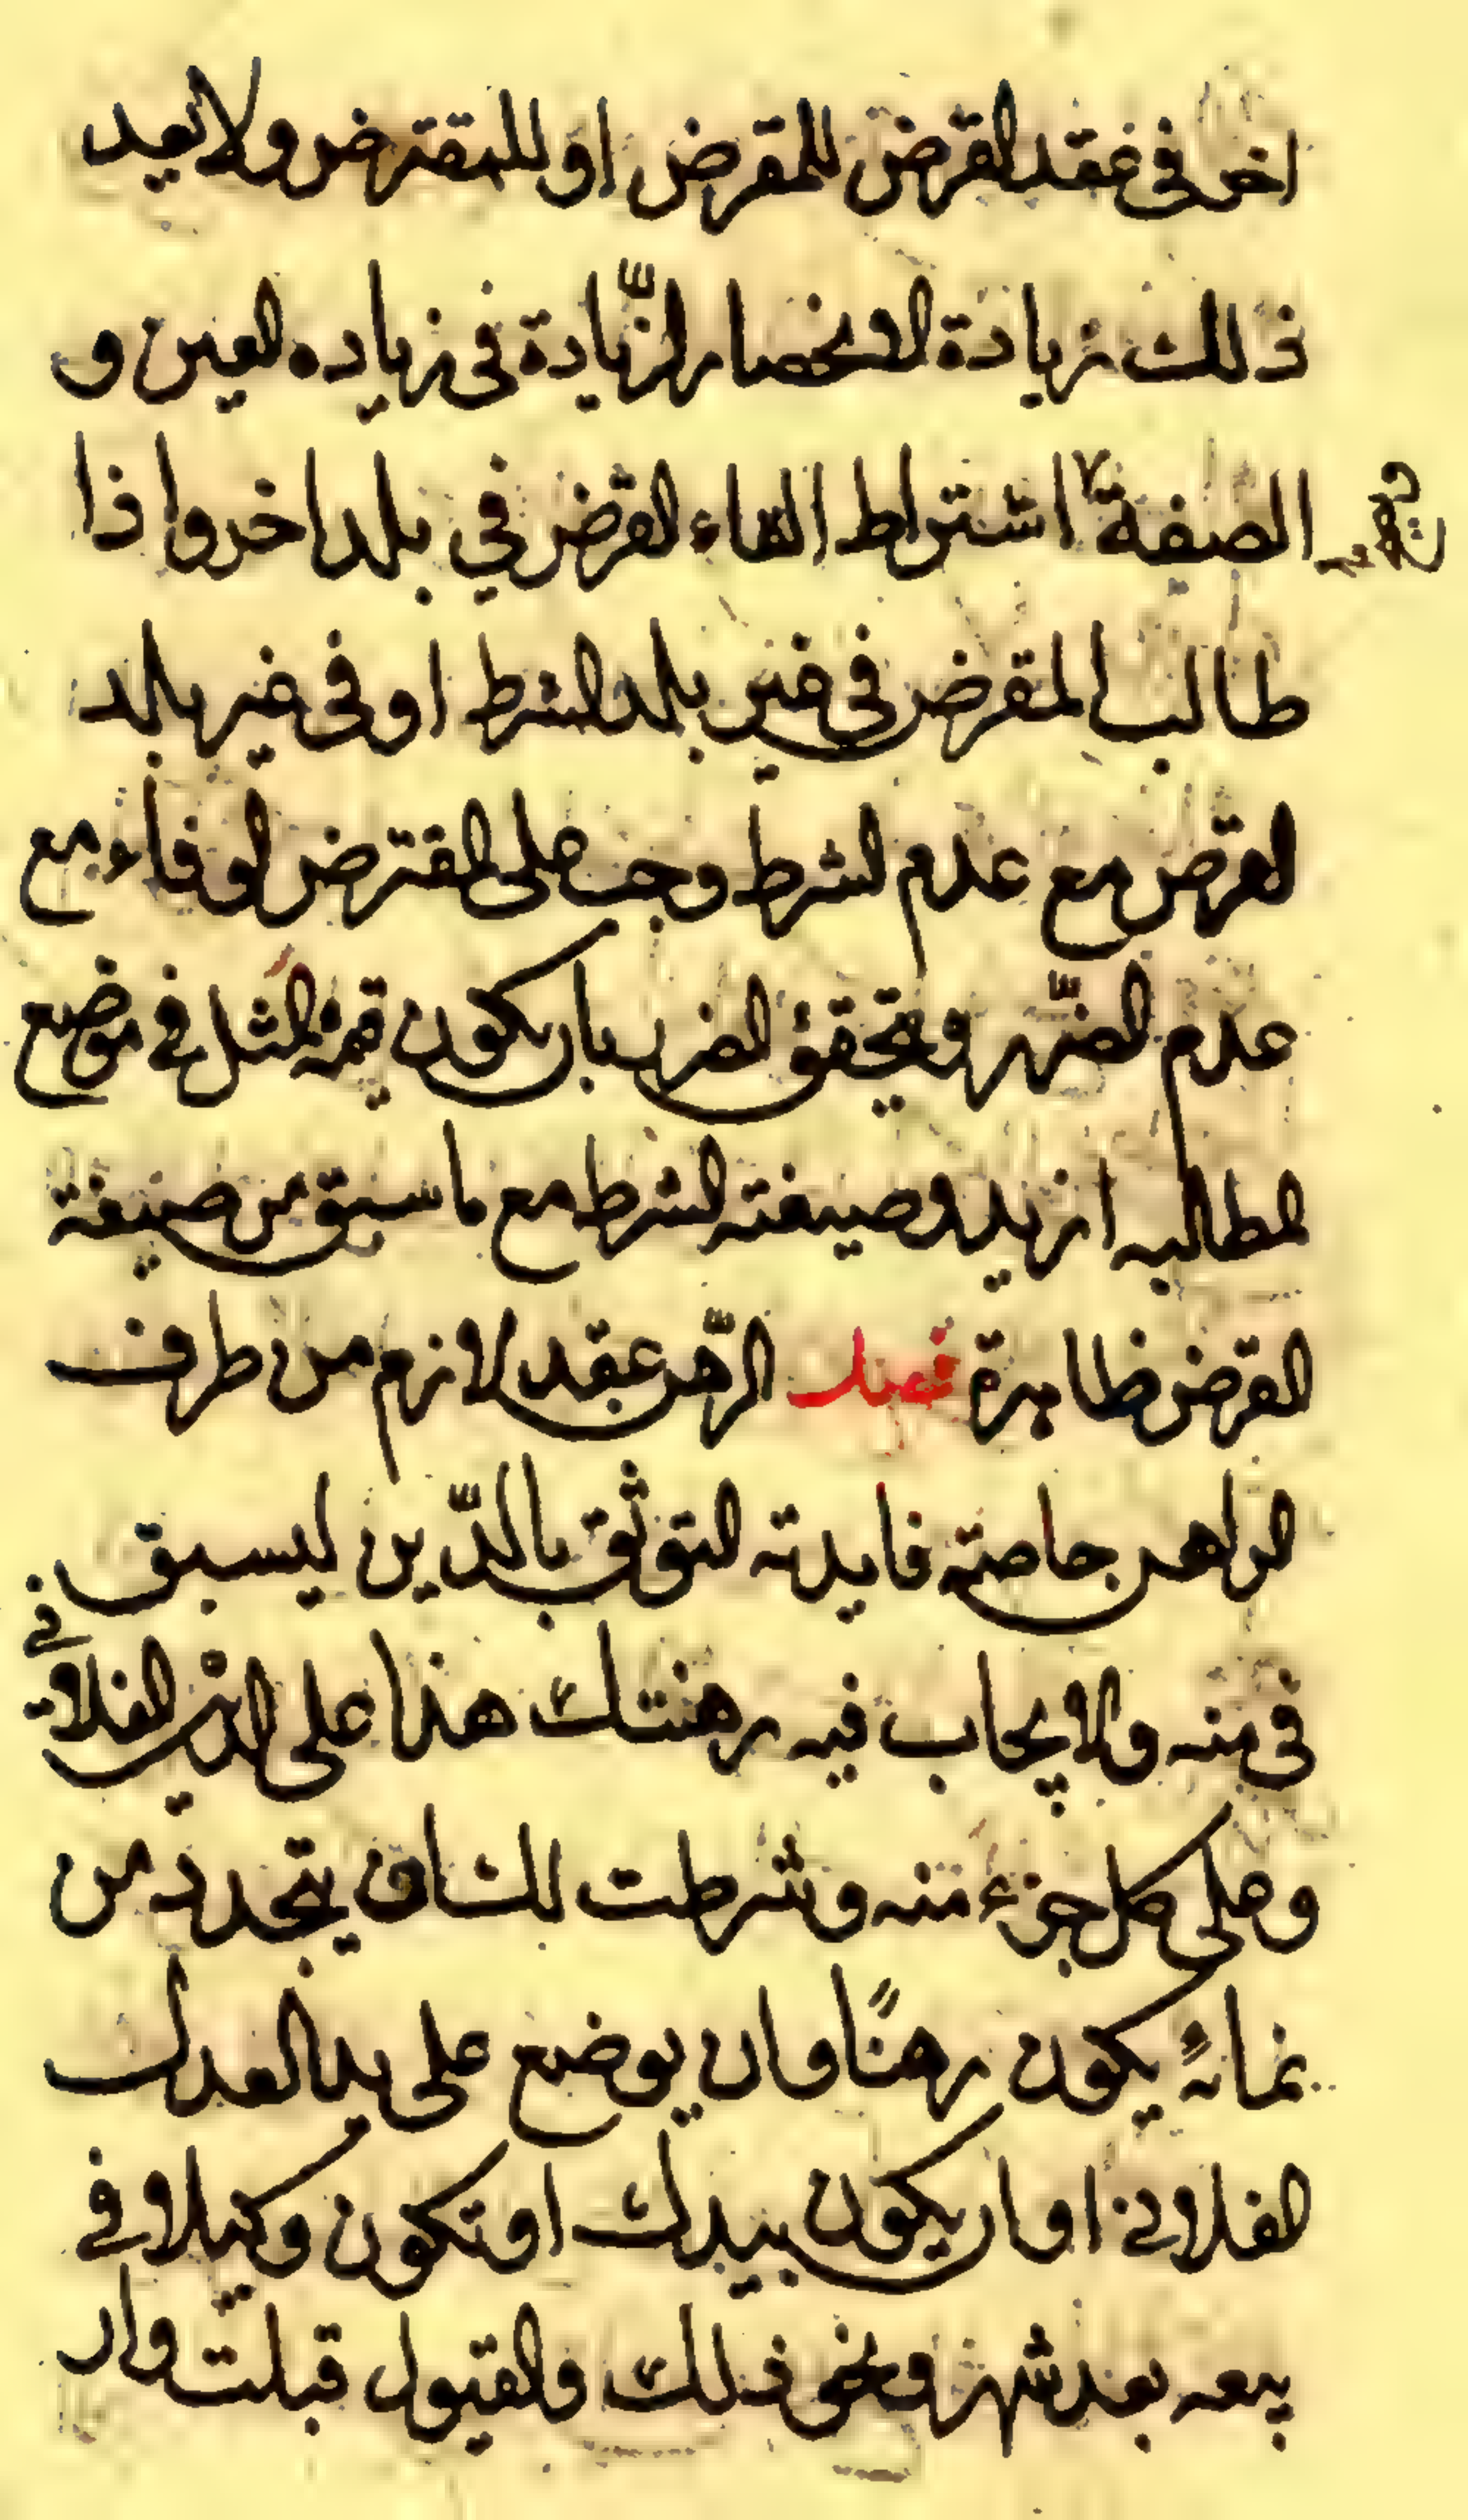 اخر فى عقد القرض للمقرض او للمقترض ولا يعد
ذلك زيادة لانحصار الزّيادة فى زياده العين و
الصفة اشتراط القاء القرض في بلد اخر واذا
ويصح
طالب المقرض فى غير بلد الشرط او فى غير بلد
القرض مع عدم الشرط وجب على المقترض الوفاء مع
عدم الضّرر ويتحقق الضرر بان يكون قيمة المثل فى موضع
المطالبه ازيد وصيغته الشرط مع ما سبق من صيغة
القرض ظاهرة فصل الرّهن عقد لازم من طرف
الراهن خاصته فايدته التوثق بالدّين ليستوفى
فى منه والايجاب فيه رهنتك هذا على الدين الفلانى
وعلى كل جزء منه وشرطت لك ان يتجدد من
نمائه يكون رهنًا وان يوضع على يد العدل
الفلانى او ان يكون بيدك او تكون وكيلا فى
بيعه بعد شهر ونحو ذلك والقبول قبلت وان